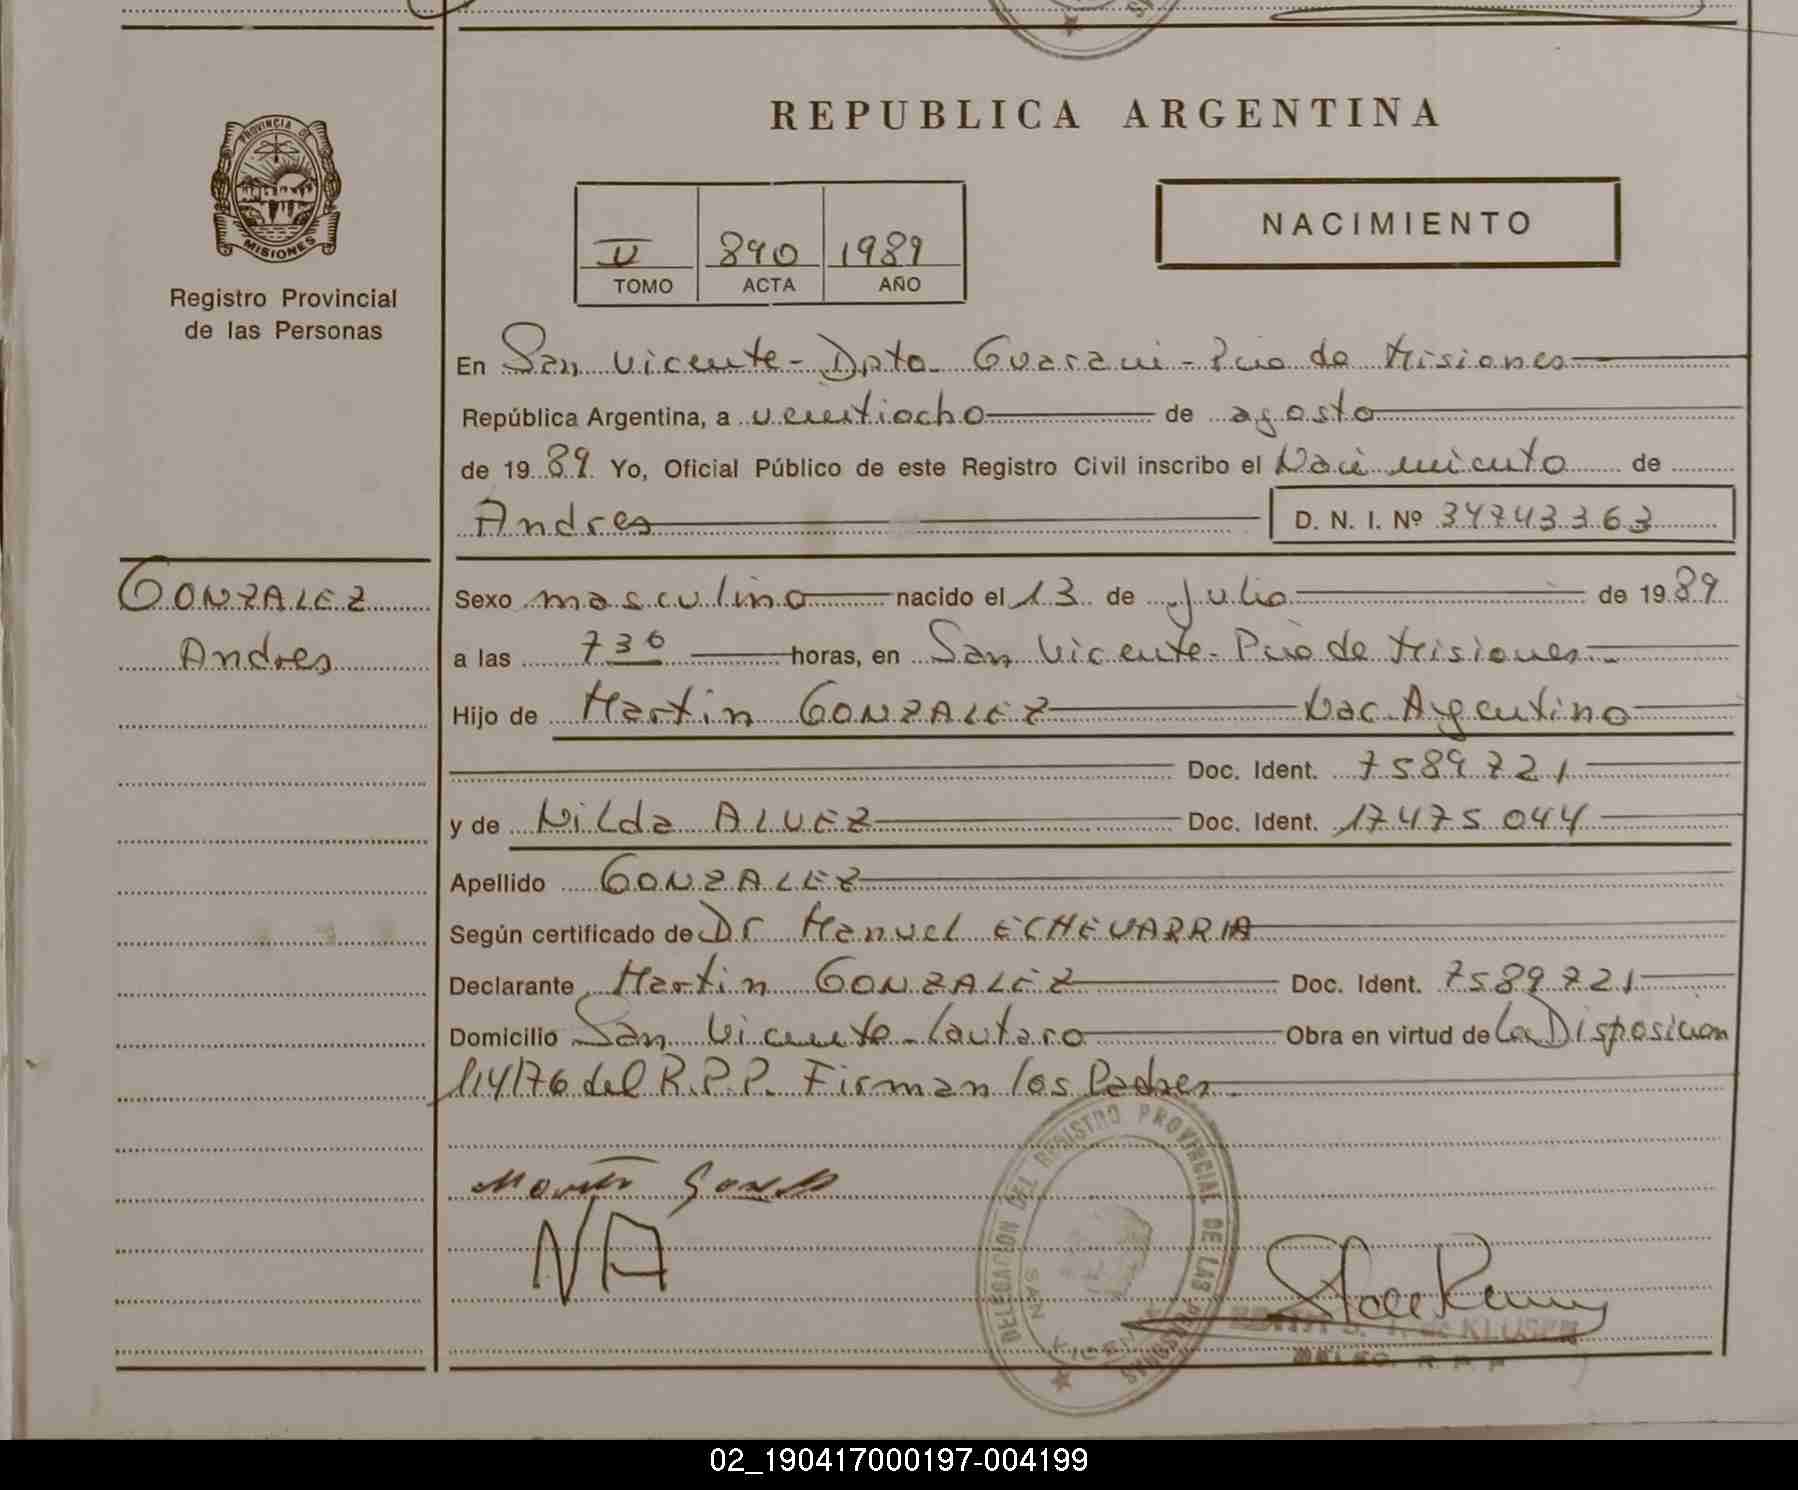 REPUBLICA ARGENTINA
PROVINCIA DE
MISIONES
Registro Provincial
de las Personas
NACIMIENTO
890 1989
TOMO ACTA AÑO
En San Vicente - Dpto. Guarani - Pcia de Misiones
República Argentina, a veintiocho de agosto
de 19 89 Yo, Oficial Público de este Registro Civil inscribo el Nacimiento de
Andres D. N. I. Nº 34743363
GONZALEZ
Andres
Sexo masculino nacido el 13 de Julio de 19 89
a las 7 30 horas, en San Vicente - Pcia de Misiones
Hijo de Martin GONZALEZ Nac. Argentino
Doc. Ident. 7589721
y de Nilda ALVEZ Doc. Ident. 17475044
Apellido GONZALEZ
Según certificado de Dr Manuel ECHEVARRIA
Declarante Martin GONZALEZ Doc. Ident. 7589721
Domicilio San Vicente - Lautaro Obra en virtud de La Disposicion
114/76 del R.P.P. Firman los Padres
NA
DELEGACION DEL REGISTRO PROVINCIAL DE LAS PERSONAS
SAN VICENTE
KLUSEN
DELEG. R. P. P.
02_190417000197-004199